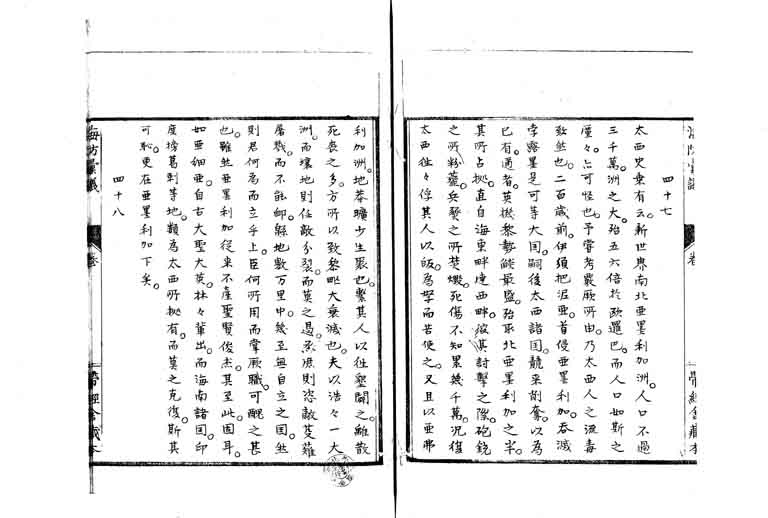 四十七
太西史乗有云新世界南北亜墨利加洲人口不過
三千萬洲之大殆五六倍於欧邏巴而人口如斯之
僅々亦可怪也予嘗考厥所由乃太西人之流毒
致然也二百歳前伊須把泥亜首侵亜墨利加呑滅
孛露墨是可等大国嗣後太西諸国競来創奪以為
已有適者英機黎勢焔最盛殆取北亜墨利加之半
其所占拠直自海東畔達西畔其討撃之際砲銃
之所粉虀兵燹之所焚燬死傷不知累幾千萬況復
太西往々俘其人以皈為而苦使之又且以亜弗
利加洲地曠少生聚也繋其人以徃墾闢之離散
死喪之多方所以致黎大衰減也夫以浩々一大
洲而壌地則任敵分裂而莫之遏烝庶則恣敵芟薙
屠戮而不能邱緜地數万里中幾至無自立之国然
則君何為而立乎上臣何所用而掌厥職可醜之甚
也雖然亜墨利加従来不産聖賢俊傑其至此固耳
如亜細亜自古大聖大英林々輩出而海南諸国印
度榜葛剌等地類為太西所拠有而莫之克復斯其
可恥更在亜墨利加下矣
四十八
海防彙議
卷